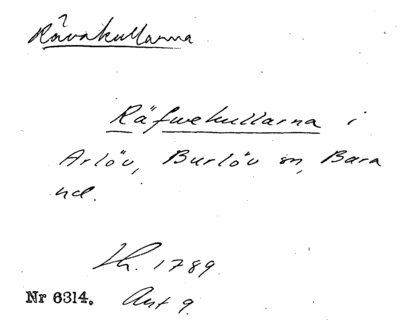 ?
Rävakullarna
Räfwekullarna i
Arlöv, Burlöv sn, Bara
hd.
Lh. 1789.
Nr 6314. Akt 9.